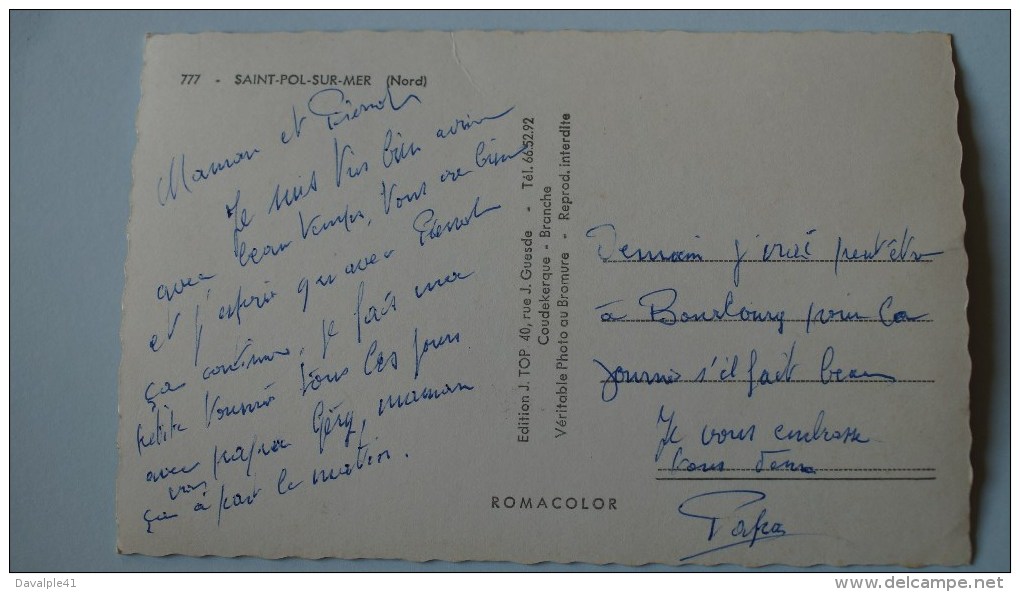 777 - SAINT-POL-SUR-MER (Nord)
Maman et Pierrot
Je suis très bien arrivé
avec beau temps, vous bien
et j'espère qu'avec Pierrot
ça continue, je fais ma
petite tournée tous les jours
avec papa Géry, maman
ça à part le matin.
Edition J. TOP 40, rue J. Guesde - Tél. 66.52.92
Coudekerque - Branche
Véritable Photo au Bromure - Reprod. interdite
Demain j'irai peut être
à Bourbourg pour la
journée s'il fait beau
Je vous embrasse
tous deux
Papa
ROMACOLOR
Davalple41
www.delcampe.net